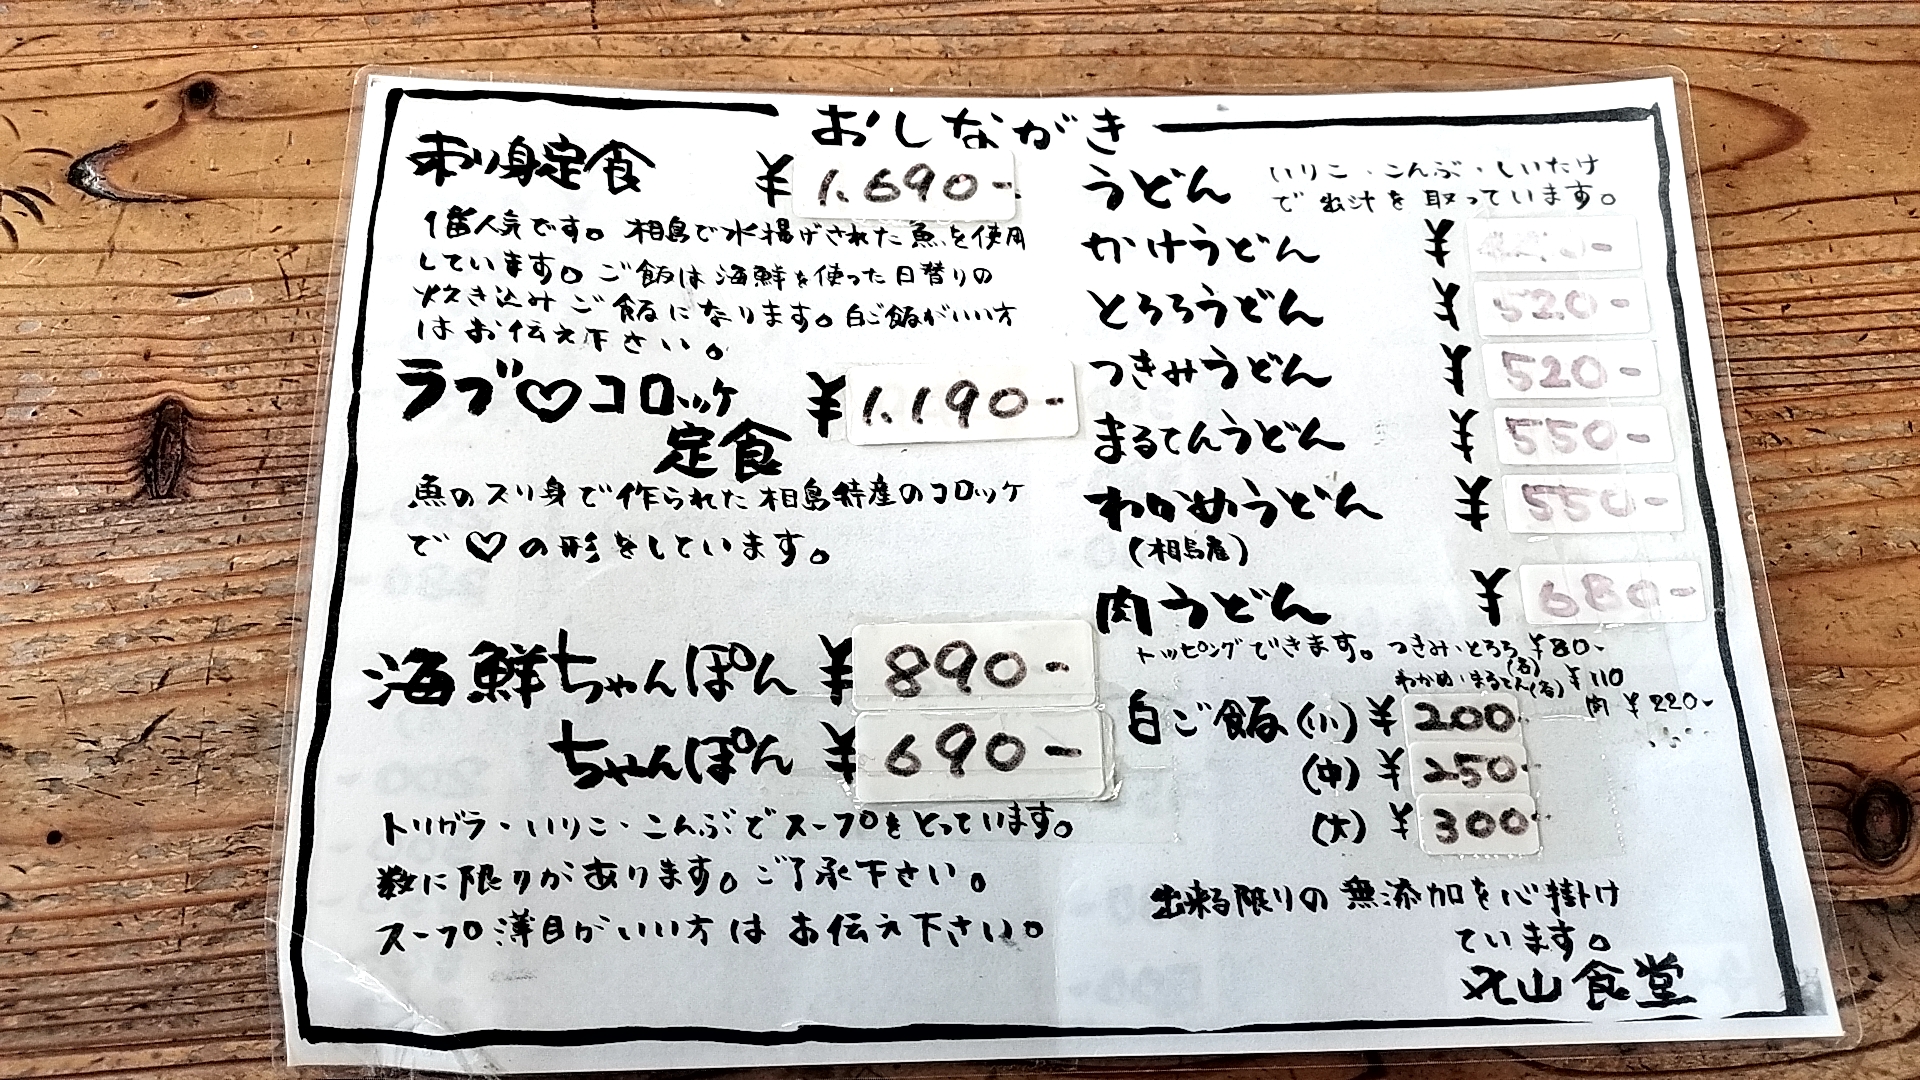 おしながき
刺り身定食 ¥1.690-
1番人気です。相島で水揚げされた魚を使用
しています。ご飯は海鮮を使った日替りの
炊き込みご飯になります。白ご飯がいい方
はお伝え下さい。
ラブ♡コロッケ
定食 ¥1.190-
魚のスリ身で作られた相島特産のコロッケ
で♡の形をしています。
海鮮ちゃんぽん ¥890-
ちゃんぽん ¥690-
トリガラ・いりこ・こんぶでスープをとっています。
数に限りがあります。ご了承下さい。
スープ薄目がいい方はお伝え下さい。
うどん いりこ・こんぶ・しいたけ
で出汁を取っています。
かけうどん ¥
とろろうどん ¥520-
つきみうどん ¥520-
まるてんうどん ¥550-
わかめうどん ¥550-
(相島産)
肉うどん ¥680-
トッピングできます。つきみ・とろろ ¥80-
(各)
わかめ・まるてん(各) ¥110
肉 ¥220-
白ご飯(小) ¥200-
(中) ¥250-
(大) ¥300-
出来る限りの無添加を心掛け
ています。
丸山食堂